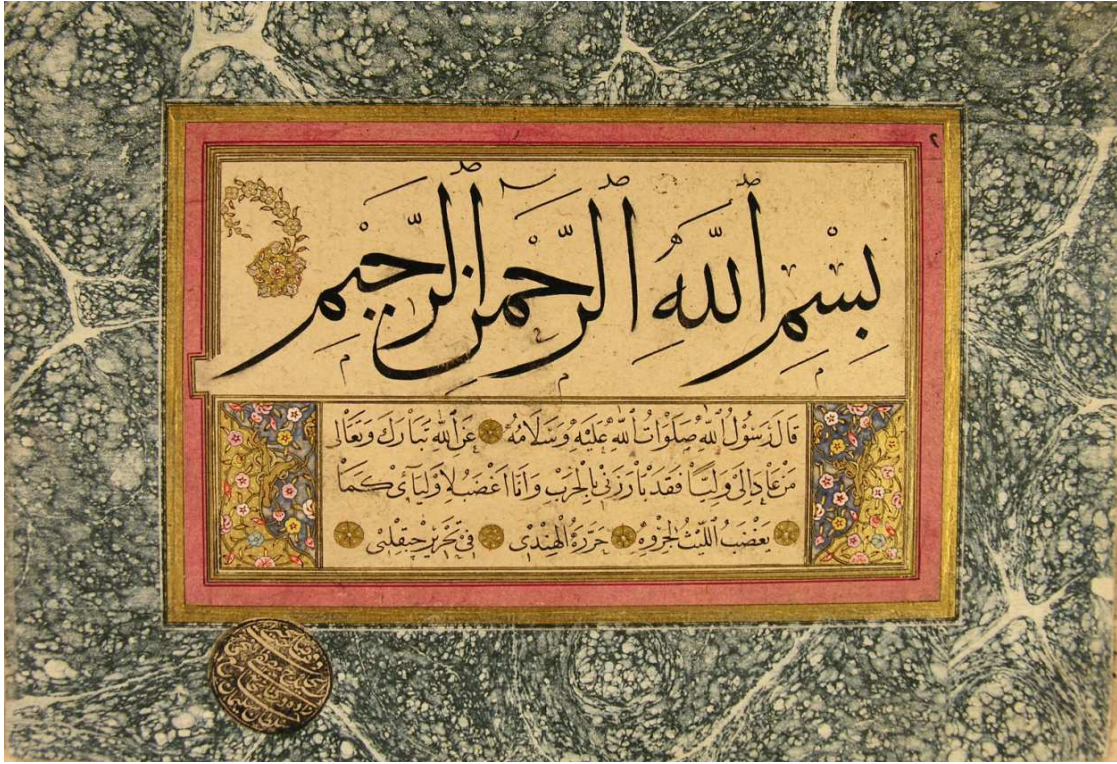 ٢
بِسْمِ ٱللَّهِ ٱلرَّحْمٰنِ ٱلرَّحِيمِ
قَالَ رَسُولُ ٱللّٰهِ صَلَوَاتُ ٱللّٰهِ عَلَيْهِ وَسَلَامُهُ عَنِ ٱللّٰهِ تَبَارَكَ وَتَعَالٰى
مَنْ عَادَا لِى وَلِيًّا فَقَدْ بَارَزَنِى بِالْحَرْبِ وَاَنَا اَغْضَبُ لِاَوْلِيَآئِى كَمَا
يَغْضَبُ ٱللَّيْثُ لِجَرْوِهِ حَرَّرَهُ الْهِنْدِى فِى تَحْرِيرِ